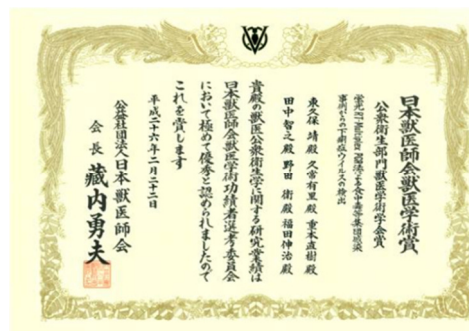 日本獣医師会獣医学術賞
公衆衛生部門獣医学術学会賞
蛍光RT-Multiplex PCR法による食中毒等集団感染
事例からの下痢症ウイルスの検出
東久保 靖殿 久常有里殿 重本直樹殿
田中智之殿 野田 衛殿 福田伸治殿
貴殿の獣医公衆衛生学に関する研究業績は
日本獣医師会獣医学術功績者選考委員会
において極めて優秀と認められましたので
これを賞します
平成二十六年二月二十二日
公益社団法人日本獣医師会
会長 藏内勇夫